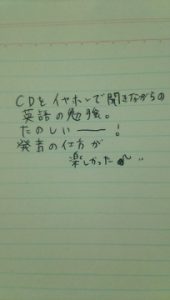 CDをイヤホンで聞きながらの
英語の勉強。
たのしい――!
発音の仕方が
楽しかった